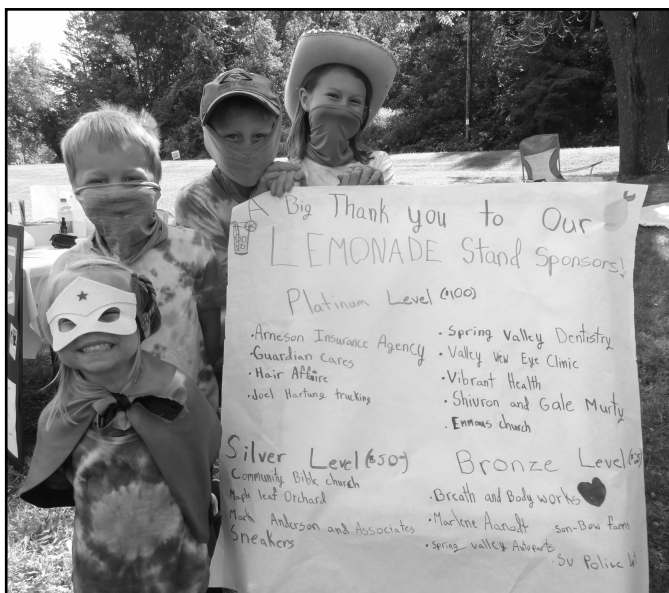 A Big Thank you to Our
LEMONADE Stand Sponsors!
Platinum Level ($100)
•Arneson Insurance Agency
•Guardian cares
•Hair Affaire
•Joel Hartung trucking
•Spring Valley Dentistry
•Valley View Eye Clinic
•Vibrant Health
•Shivron and Gale Murty
•Emmaus church
Silver Level ($50)
Community Bible church
Maple leaf Orchard
Mark Anderson and Associates
Sneakers
Bronze Level
•Breath and Body works
•Marlene Aanodt
Son-Bow farm
•Spring valley Autoparts
•SV Police